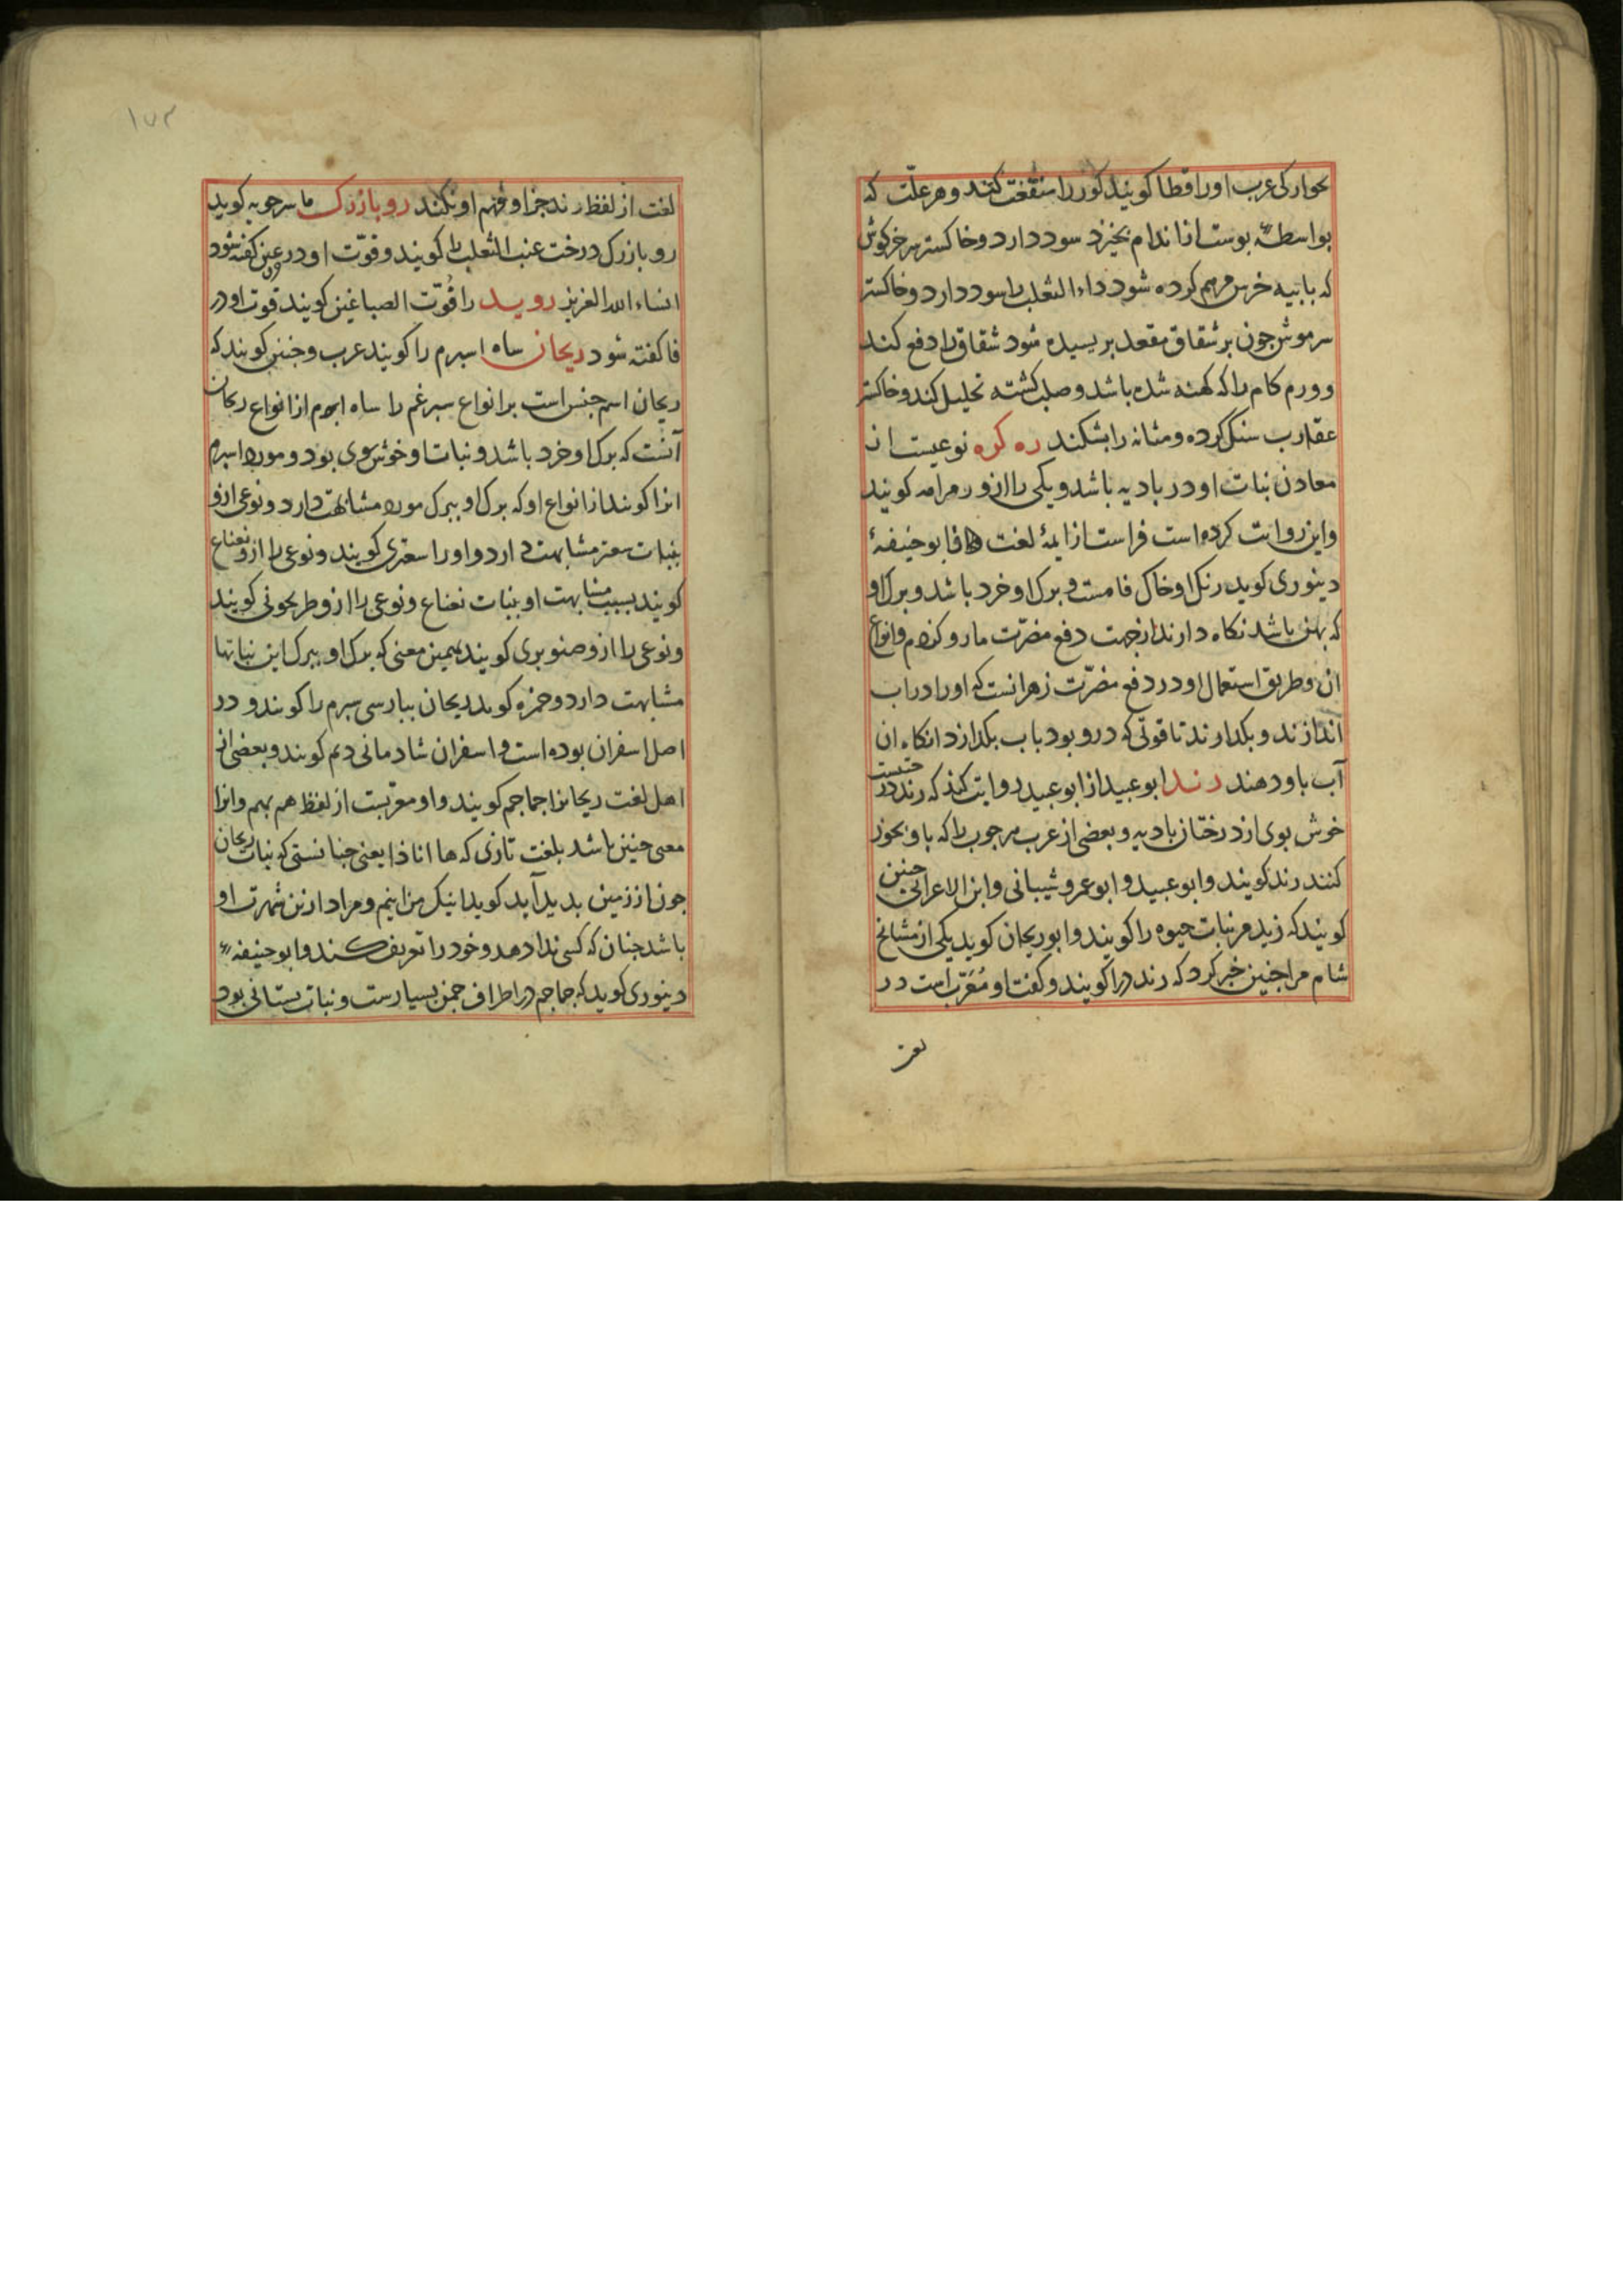 بحوارکی عرب اورا قطا کویند کور را منفعت کند و هر علّت که
بواسطهٔ بوست از اندام بخیزد سود دارد و خاکستر سر خرکوش
که با بیه خرس مرهم کرده شود داء الثعلب را سود دارد و خاکستر
سر موش جون بر شقاق مقعد بر یسیده شود شقاق را دفع کند
و ورم کام را که کهنه شده باشد و صلب کشته تحلیل کند و خاکستر
عقارب سنک کرده و مثانه را بشکند ره کره نوعیست از
معادن نبات او در بادیه باشد و یکی را ازو رمرامه کویند
و این روایت کرده است فرا است از ایمهٔ لغت و ابو حنیفهٔ
دینوری کوید رنک او خاک فامست و برک او خرد باشد و برک او
که بهن باشد نکاه دارند از جهت دفع مضرّت مار و کزدم و انواع
ان و طریق استعمال او در دفع مضرّت زهر انست که اورا در اب
اندازند و بکذارند تا قوتی که درو بود باب بکذارد انکاه ان
آب باو دهند رند ابو عبید از ابو عبیده روایت کند که رند درختیست
خوش بوی از درختان بادیه و بعضی از عرب مر جوب را که باو بخور
کنند رند کویند و ابو عبید و ابو عمرو شیبانی و ابن الاعرابی جنین
کویند که زید مر نبات حیوه را کویند و ابو ریحان کوید یکی از مشایخ
شام مرا جنین خبر کرد که رند را کویند و کفت او مُعَرّب است در
لغت
۱۷۳
لغت از لفظ رند جز او فهم او نکنند روبازرک ماسرجویه کوید
روبازرک درخت عنب الثعلب را کویند و قوّت او در عین کفته شود
انشاء الله العزیز روید را قُوّت الصباغین کویند قوت او در
فا کفته شود ریحان ساه اسبرم را کویند عرب و جنین کویند که
ریحان اسم جنس است بر انواع سبرغم را ساه اسبرم از انواع ریحان
آنست که برک او خرد باشد و نبات او خوش بوی بود و مورد اسبرم
انرا کویند از انواع او که برک او ببرک مورد مشابهت دارد و نوعی ازو
بنبات سعتر مشابهت دارد و اورا سعتری کویند و نوعی را ازو نعناع
کویند بسبب مشابهت او بنبات نعناع و نوعی را ازو طرخونی کویند
و نوعی را ازو صنوبری کویند بهمین معنی که برک او ببرک این نباتها
مشابهت دارد و حمزه کوید ریحان ببارسی سبرم را کویند و در
اصل اسفران بوده است و اسفران شادمانی دلم کویند و بعضی از
اهل لغت ریحانرا جماجم کویند و او معرّبست از لفظ هم بهم و انرا
معنی جنین باشد بلغت تازی که ها انا ذا یعنی جنانستی که نبات ریحان
جون از زمین بدید آید کوید اینک من اینم و مراد ازین شهرت او
باشد جنان که کسی ندا دهد و خود را تعریف کند و ابو حنیفه
دینوری کوید که جماجم در اطراف جمن بسیارست و نبات بستانی بود